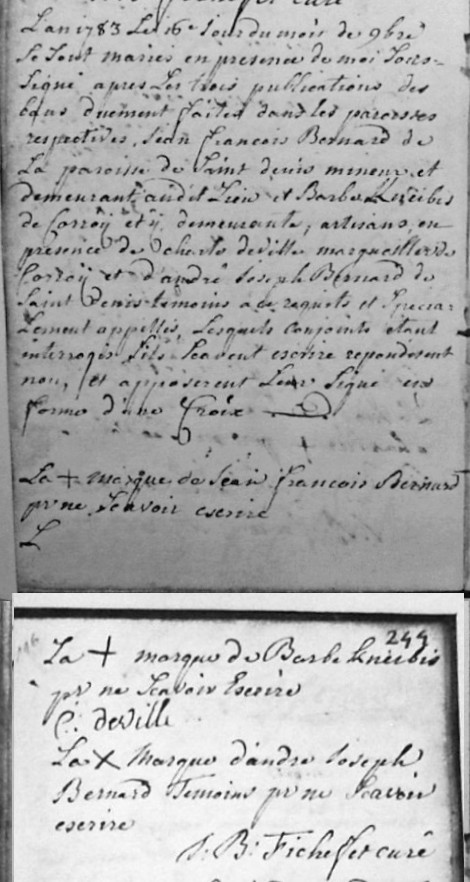 L'an 1783 Le 16e Jour du mois de 9bre
se sont mariés en presence de moi sous-
signé apres Les trois publications des
bans duement faites dans les paroisses
respectives, Jean françois Bernard de
La paroisse de Saint denis mineur et
demeurant audit Lieu et Barbe Kneibis
de Corroÿ et ÿ demeurante, artisans, en
presence de Charle deville marguillier de
Corroÿ et d'andré Joseph Bernard de
Saint Denis temoins a ce requets et specia-
Lement appellés, Lesquels conjoints etant
interrogés s'ils scavent escrire repondirent
non, et apposerent Leur signe en
forme d'une Croix
La + marque de Jean françois Bernard
pr ne scavoir escrire
L
244
La + marque de Barbe Kneibis
pr ne scavoir Escrire
C. deville
La X Marque d'andre Joseph
Bernard Temoins pr ne scavoir
escrire
J: B: Fichefet curé